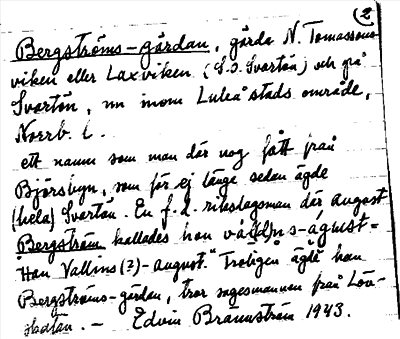 (2)
Bergströms-gårdan, gårda N. Tomassons
viken eller Laxviken (S.O. Svartön) och på
Svartön, nu inom Luleå stads område,
Norrb. l.
ett namn som man där nog fått från
Björsbyn, som för ej länge sedan ägde
(hela) Svartön. En f.d. riksdagsman där August
Bergström kallades han
"Han Vallins(?)-august." Troligen ägde han
Bergströms-gårdan, tror sagesmannen från Löv-
skatan. — Edvin Brännström 1943.